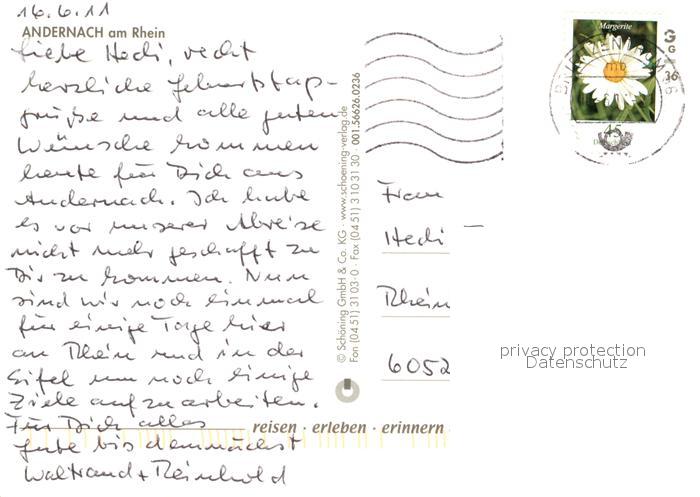 16.6.11
ANDERNACH am Rhein
Liebe Hedi, recht
herzliche Geburtstags-
grüße und alle guten
Wünsche kommen
heute für Dich aus
Andernach. Ich habe
es vor unserer Abreise
nicht mehr geschafft zu
Dir zu kommen. Nun
sind wir noch einmal
für einige Tage hier
am Rhein und in der
Eifel um noch einige
Ziele aufzuarbeiten.
Für Dich alles
gute bis demnächst
Waltraud + Reinhold
© Schöning GmbH & Co. KG · www.schoening-verlag.de
Fon (04 51) 31 03-0 · Fax (04 51) 3 10 31 30 · 001.56626.0236
reisen · erleben · erinnern
Margerite
45
BRIEFZENTRUM
Frau
Hedi
Rhein
6052
privacy protection
Datenschutz